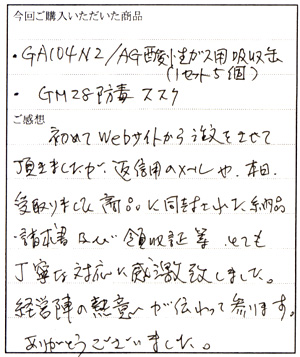 今回ご購入いただいた商品
・GA104N2/AG酸性ガス用吸収缶
(1セット5個)
・GM28防毒マスク
ご感想
初めてWebサイトから注文をさせて
頂きましたが、返信用のメールや、本日、
受取りました商品に同封された納品
・請求書及び領収証等 とても
丁寧な対応に感激致しました。
経営陣の熱意が伝わって参ります。
ありがとうございました。